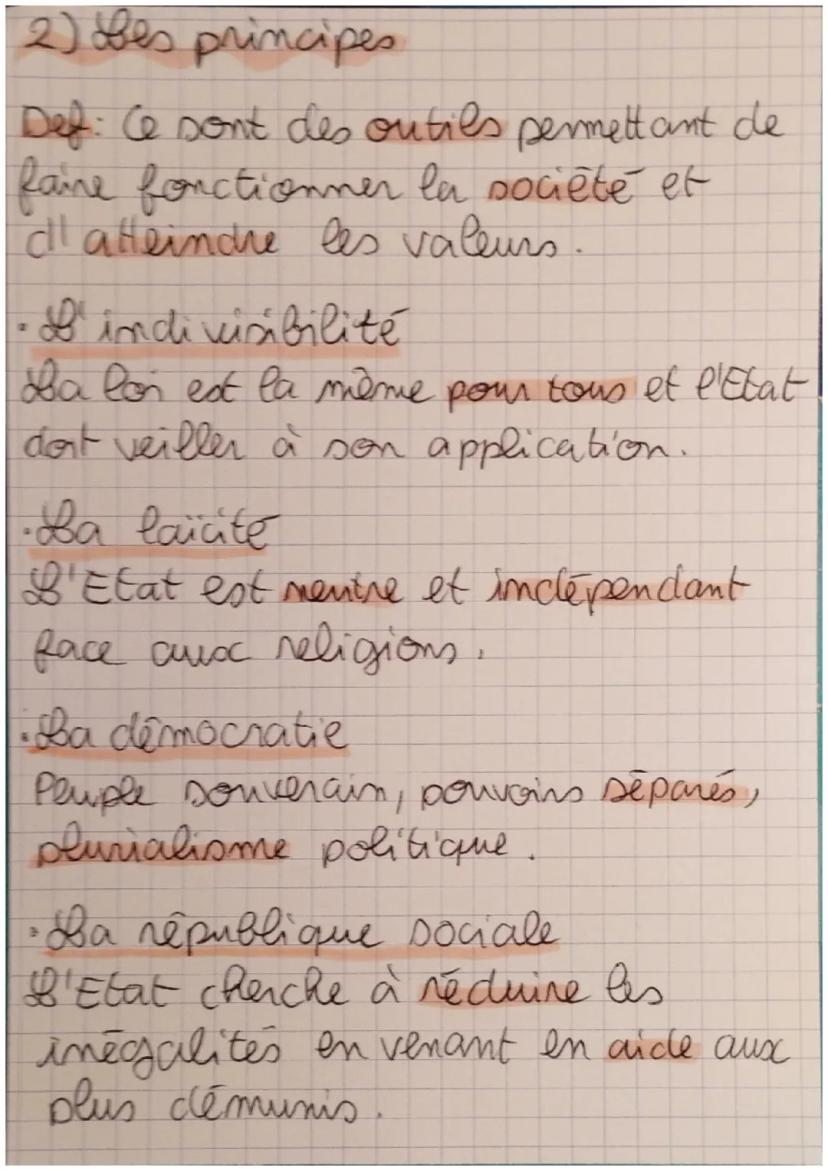 2) Les principes
Def: Ce sont des outils permettant de
faire fonctionner la société et
d'atteindre les valeurs.
• L'indivisibilité
La loi est la même pour tous et l'Etat
doit veiller à son application.
• La laïcité
L'Etat est neutre et indépendant
face aux religions.
• La démocratie
Peuple souverain, pouvoirs séparés,
plurialisme politique.
• La république sociale
L'Etat cherche à réduire les
inégalités en venant en aide aux
plus démunis.